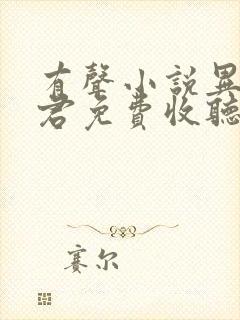 有聲小說異
君免費收聽
賽尔